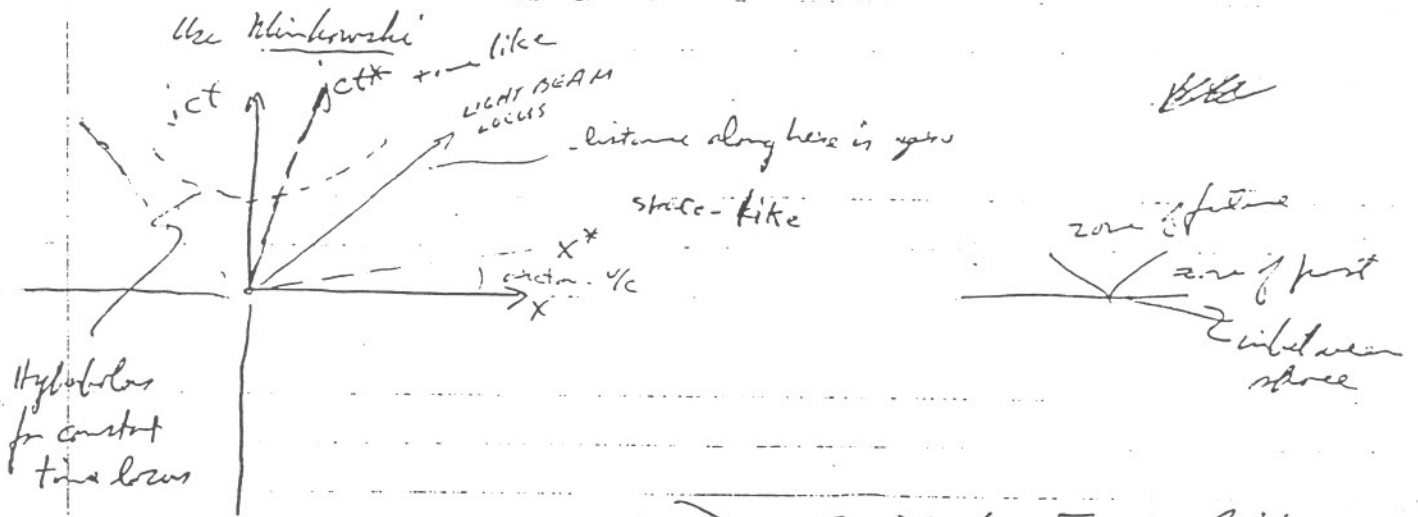 Use Minkowski
ict
ict* time like
LIGHT BEAM
LOCUS
distance along here is zero
space-like
x*
arctan v/c
x
Hyperbolas
for constant
time locus
zone of future
zone of past
inbetween
space